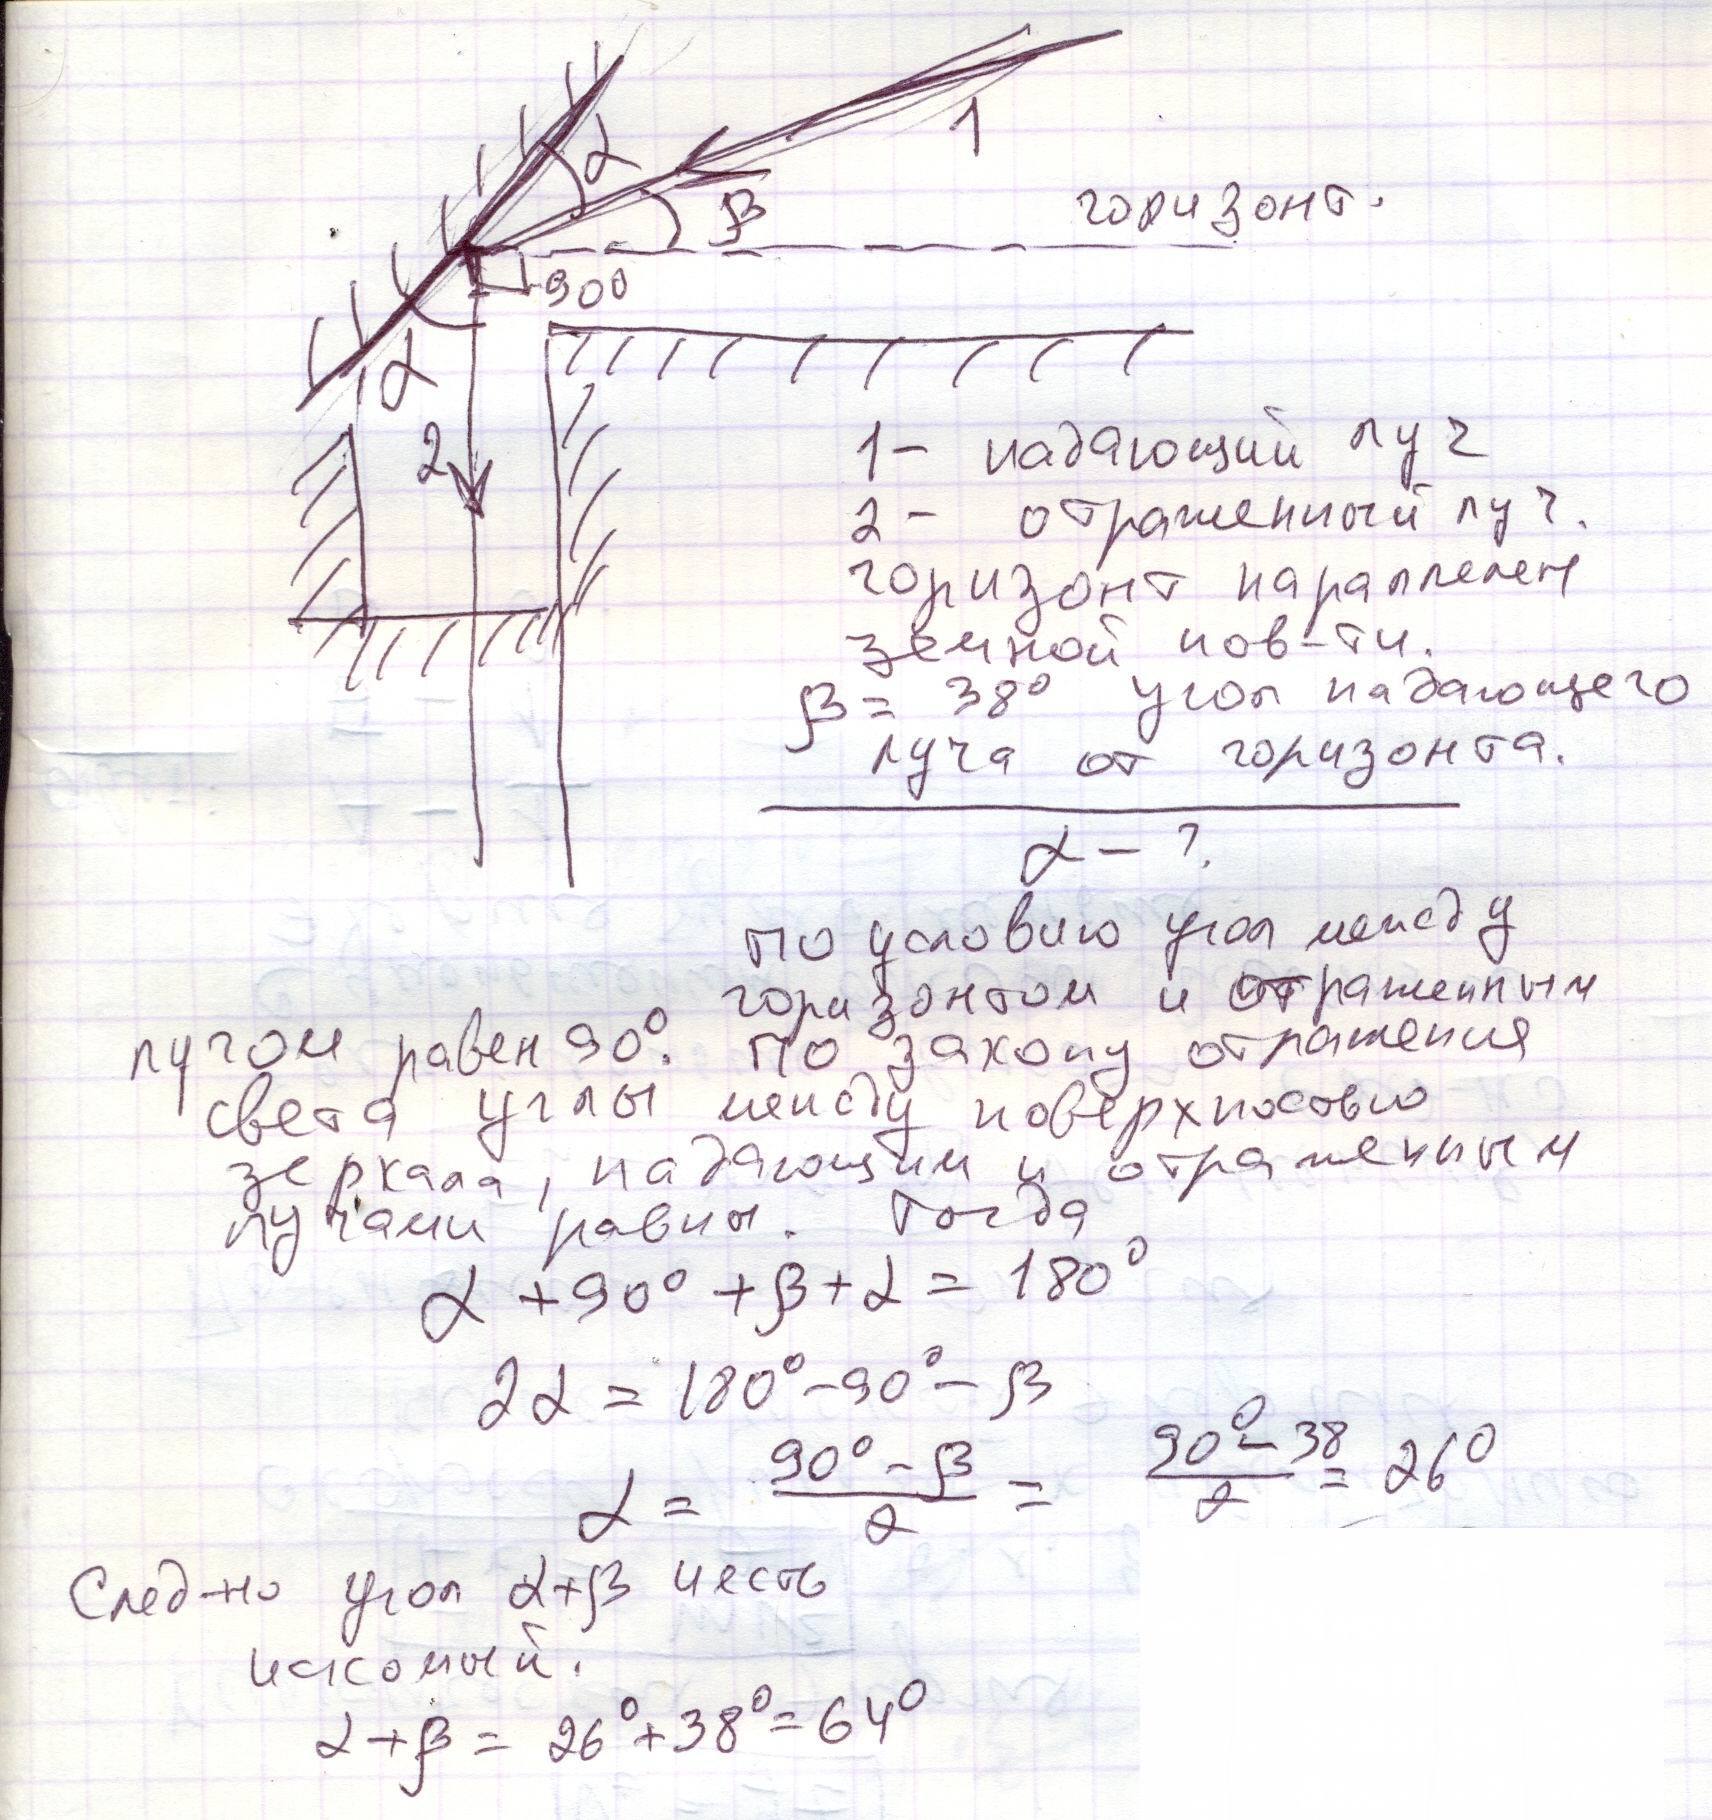 α
1
β
горизонт.
90°
α
2
1 - падающий луч
2 - отраженный луч.
горизонт параллелен
земной пов-ти.
β = 38° угол падающего
луча от горизонта.
α - ?
По условию угол между
горизонтом и отраженным
лучом равен 90°. По закону отражения
света углы между поверхностью
зеркала, падающим и отраженным
лучами равны. Тогда
α + 90° + β + α = 180°
2α = 180° - 90° - β
α = (90° - β)/2 = (90° - 38)/2 = 26°
След-но угол α+β и есть
искомый.
α + β = 26° + 38° = 64°